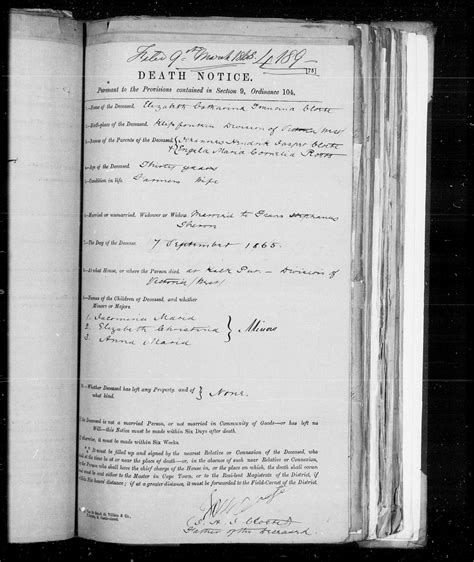 Filed 9th March 1868 4189
[78]
DEATH NOTICE.
Pursuant to the Provisions contained in Section 9, Ordinance 104.
1.—Name of the Deceased. Elizabeth Catharina Cloete
2.—Birthplace of the Deceased. Klipfontein Division of Victoria West
3.—Names of the Parents of the Deceased. Johannes Hendrik Jasper Cloete
& Engela Maria Cornelia
4.—Age of the Deceased. Thirty years
5.—Condition in life. Farmers Wife
6.—Married or unmarried, Widower or Widow. Married to Frans Stephanus
Theron
7.—The Day of the Decease. 7 September 1865.
8.—At what House, or where the Person died. at Kalk Put – Division of
Victoria West
9.—Names of the Children of Deceased, and whether
Minors or Majors.
1. Jacomina Maria
2. Elizabeth Christina } Minors
3. Anna Maria
10.—Whether Deceased has left any Property, and of
what kind. } None.
If the Deceased is not a married Person, or not married in Community of Goods—or has left no
Will—this Notice must be made within Six Days after death.
If otherwise, it must be made within Six Weeks.
It must be filled up and signed by the nearest Relative or Connexion of the Deceased, who
shall be at or near the place of death—or, in the absence of such near Relative or Connexion,
by the Person who shall have the chief charge of the House in, or the place on which, the death shall occur:
and must be sent either to the Master in Cape Town, or to the Resident Magistrate of the District, if
within Six hours' distance; if at a greater distance, it must be forwarded to the Field-Cornet of the District.
J. H. J. Cloete
Father of the Deceased